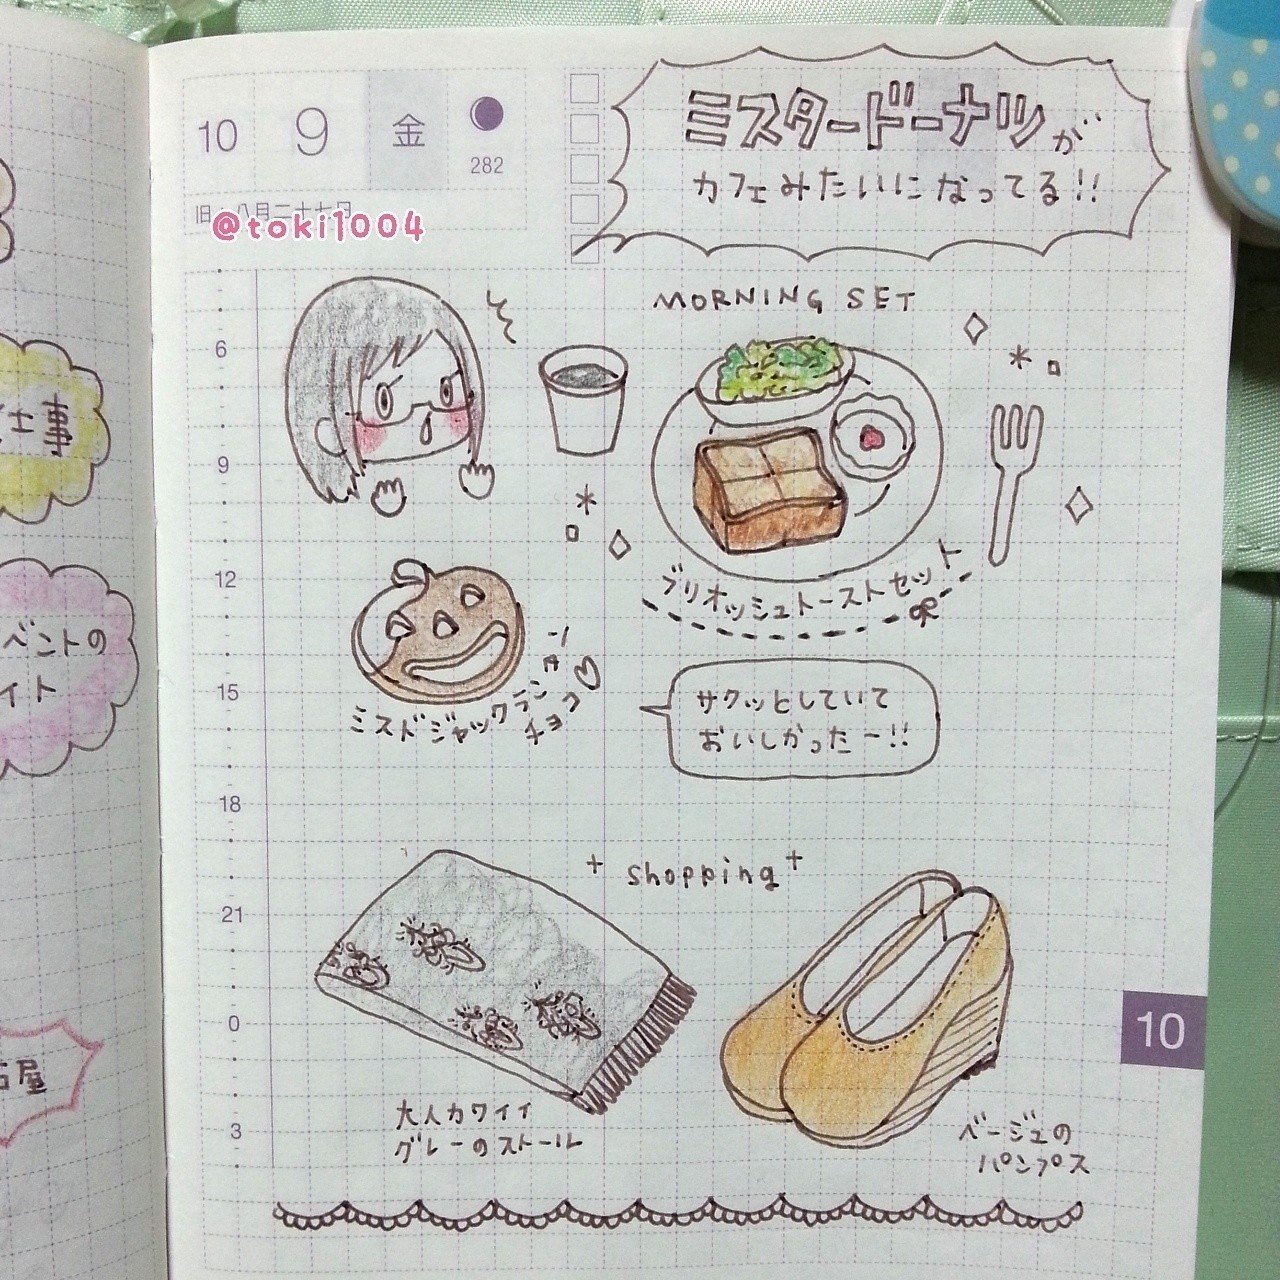 10 9 金
282
旧・八月二十七日
@toki1004
ミスタードーナツが
カフェみたいになってる!!
MORNING SET
6
9
12
15
18
21
0
3
ブリオッシュトーストセット
ミスドジャックランタン
チョコ
サクッとしていて
おいしかったー!!
+ shopping +
大人カワイイ
グレーのストール
ベージュの
パンプス
10
仕事
ベントの
イト